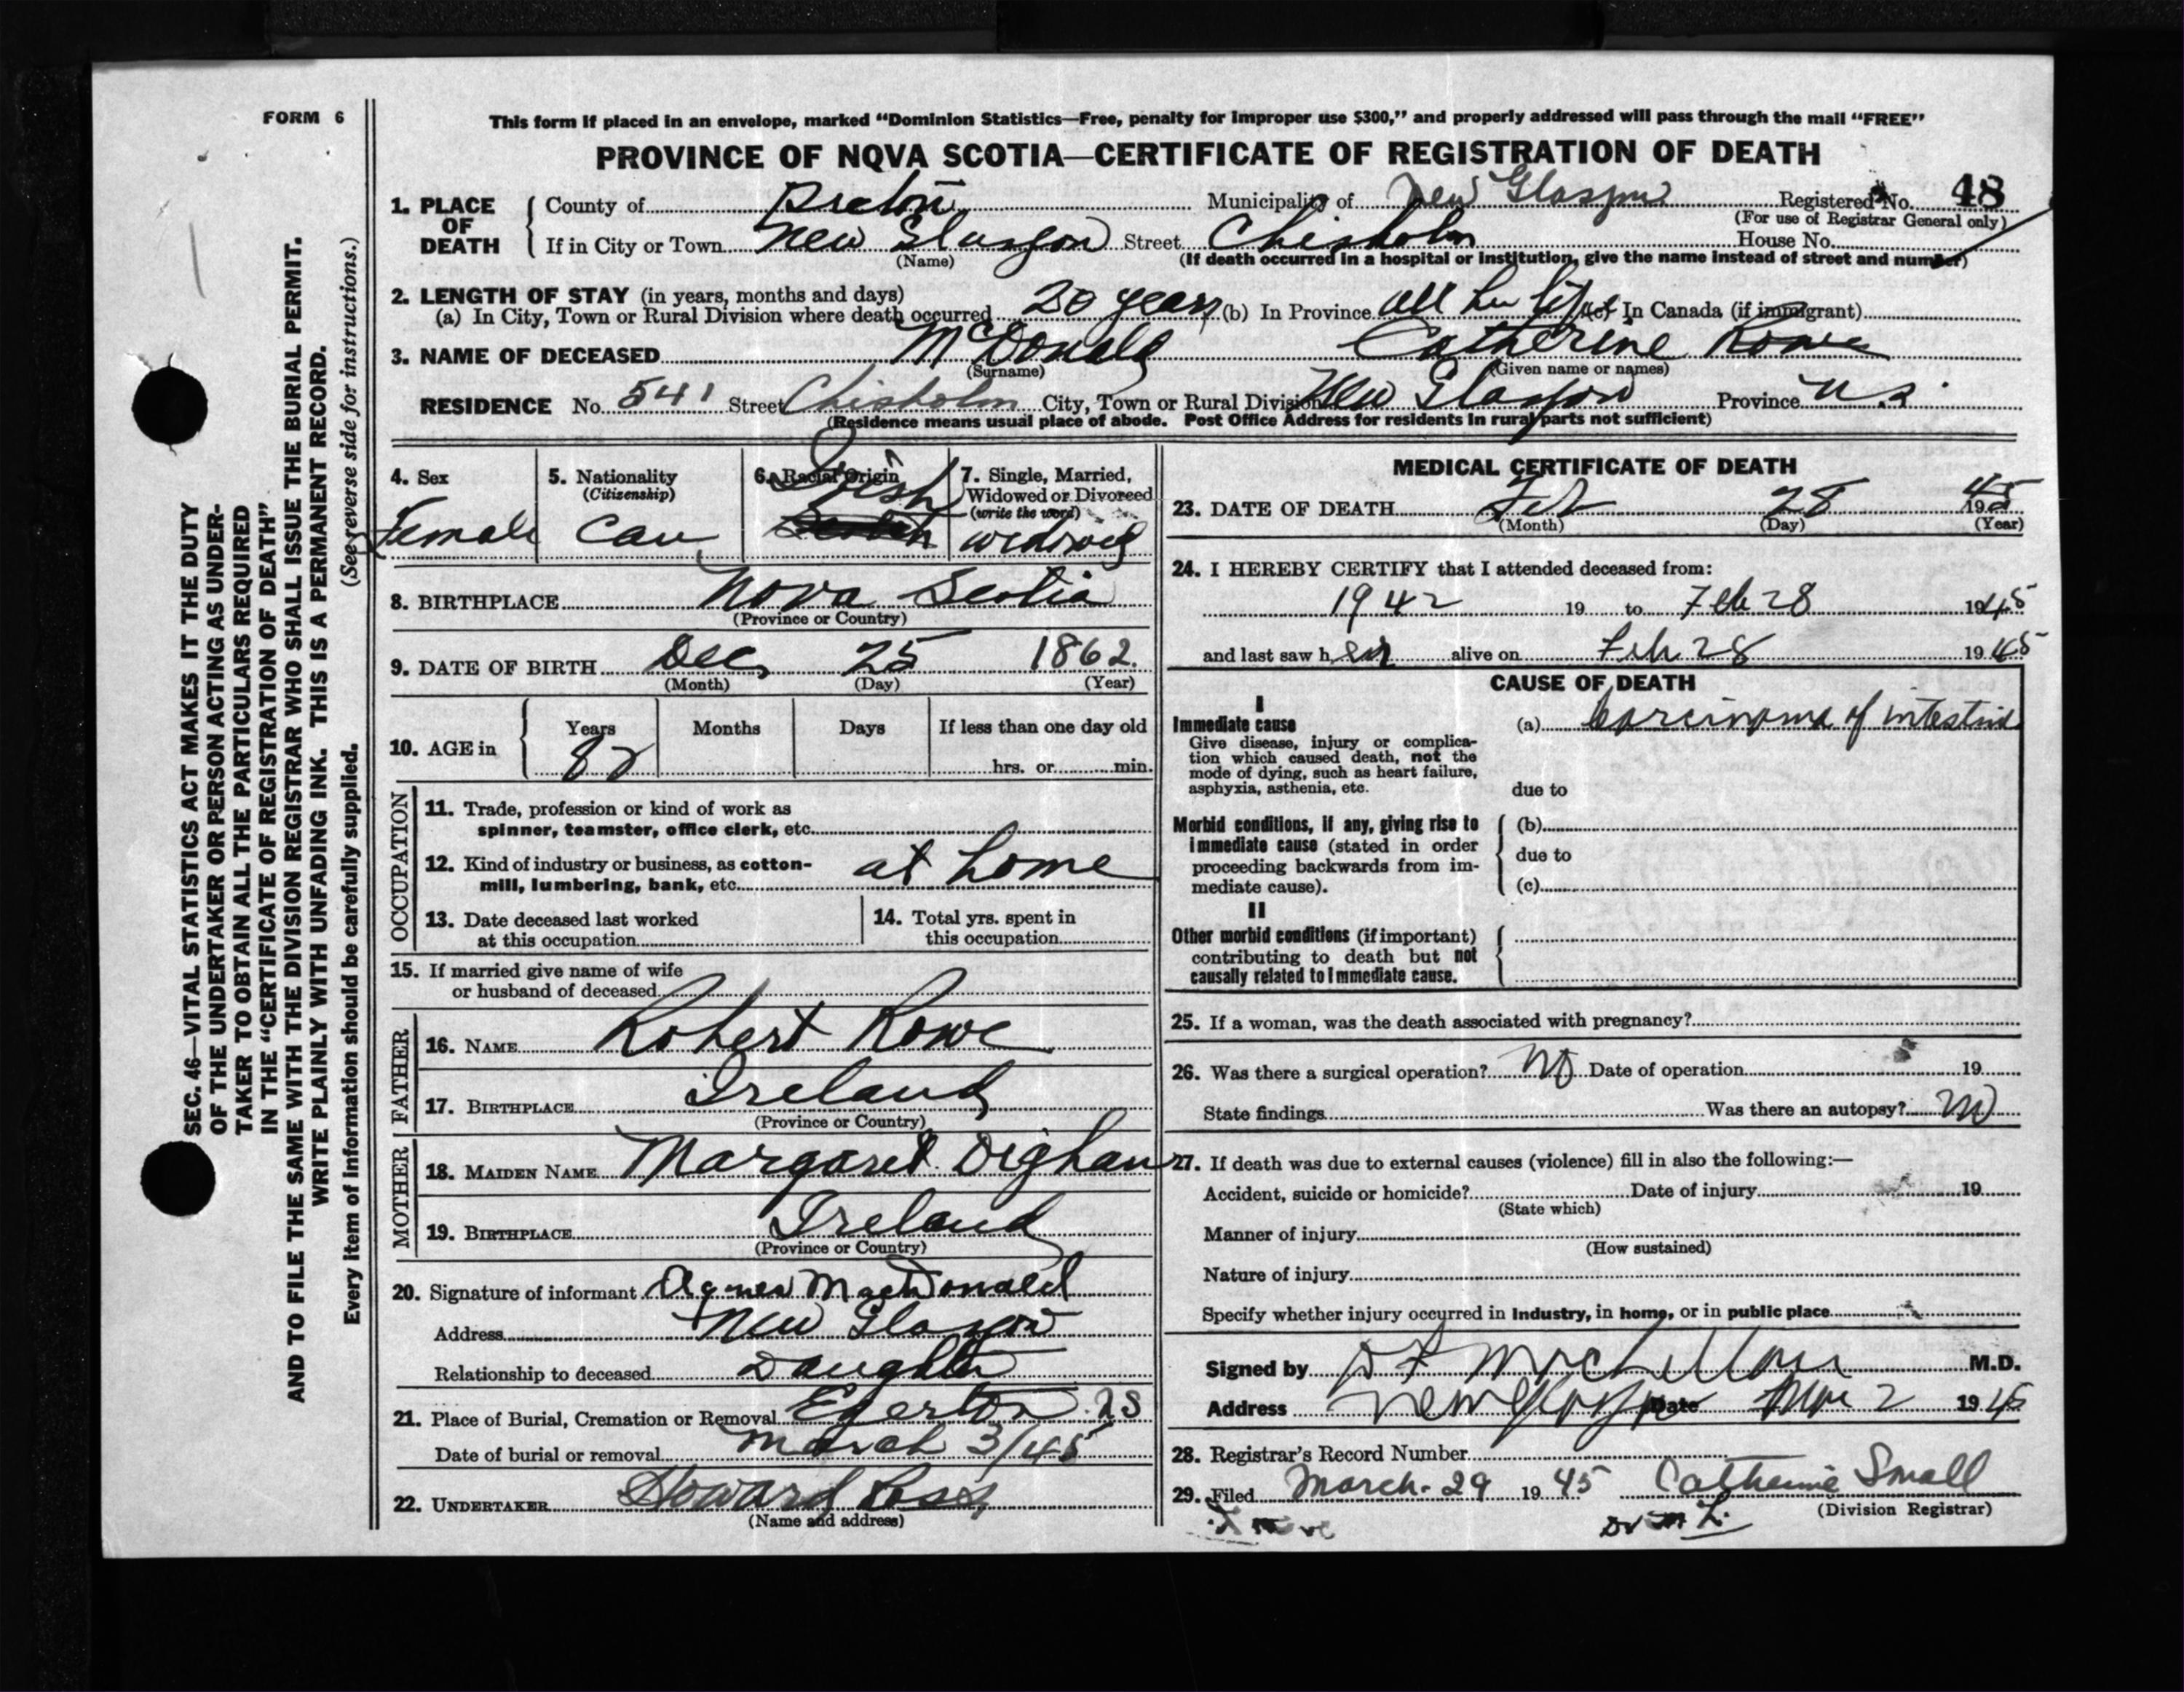 FORM 6
This form if placed in an envelope, marked "Dominion Statistics—Free, penalty for improper use $300," and properly addressed will pass through the mail "FREE"
PROVINCE OF NOVA SCOTIA—CERTIFICATE OF REGISTRATION OF DEATH
1. PLACE OF DEATH County of Pictou Municipality of New Glasgow Registered No. 48
(For use of Registrar General only)
If in City or Town New Glasgow Street Chisholm House No.
(Name) (If death occurred in a hospital or institution, give the name instead of street and number)
2. LENGTH OF STAY (in years, months and days)
(a) In City, Town or Rural Division where death occurred 30 years (b) In Province all her life (c) In Canada (if immigrant)
3. NAME OF DECEASED McDonald Catherine Rowe
(Surname) (Given name or names)
RESIDENCE No. 541 Street Chisholm City, Town or Rural Division New Glasgow Province N.S.
(Residence means usual place of abode. Post Office Address for residents in rural parts not sufficient)
4. Sex 5. Nationality (Citizenship) 6. Racial Origin 7. Single, Married, Widowed or Divorced (write the word)
Female Can Irish widowed
8. BIRTHPLACE Nova Scotia
(Province or Country)
9. DATE OF BIRTH Dec 25 1862.
(Month) (Day) (Year)
10. AGE in Years Months Days If less than one day old
82 hrs. or min.
OCCUPATION
11. Trade, profession or kind of work as
spinner, teamster, office clerk, etc.
12. Kind of industry or business, as cotton-
mill, lumbering, bank, etc. at home
13. Date deceased last worked at this occupation
14. Total yrs. spent in this occupation
15. If married give name of wife
or husband of deceased
FATHER
16. NAME Robert Rowe
17. BIRTHPLACE Ireland
(Province or Country)
MOTHER
18. MAIDEN NAME Margaret Dighan
19. BIRTHPLACE Ireland
(Province or Country)
20. Signature of informant Agnes MacDonald
Address New Glasgow
Relationship to deceased Daughter
21. Place of Burial, Cremation or Removal Egerton NS
Date of burial or removal March 3/45
22. UNDERTAKER Howard Ross
(Name and address)
MEDICAL CERTIFICATE OF DEATH
23. DATE OF DEATH Feb 28 1945
(Month) (Day) (Year)
24. I HEREBY CERTIFY that I attended deceased from:
1942 19 to Feb 28 1945
and last saw her alive on Feb 28 1945
CAUSE OF DEATH
I
Immediate cause (a) Carcinoma of intestine
Give disease, injury or complica-
tion which caused death, not the
mode of dying, such as heart failure,
asphyxia, asthenia, etc. due to
Morbid conditions, if any, giving rise to (b)
immediate cause (stated in order
proceeding backwards from im- due to
mediate cause). (c)
II
Other morbid conditions (if important)
contributing to death but not
causally related to immediate cause.
25. If a woman, was the death associated with pregnancy?
26. Was there a surgical operation? No Date of operation 19
State findings Was there an autopsy? No
27. If death was due to external causes (violence) fill in also the following:—
Accident, suicide or homicide? Date of injury 19
(State which)
Manner of injury
(How sustained)
Nature of injury
Specify whether injury occurred in industry, in home, or in public place
Signed by D F MacLellan M.D.
Address New Glasgow Date Mar 2 1945
28. Registrar's Record Number
29. Filed March. 29 1945 Catherine Small
(Division Registrar)
SEC. 46—VITAL STATISTICS ACT MAKES IT THE DUTY
OF THE UNDERTAKER OR PERSON ACTING AS UNDER-
TAKER TO OBTAIN ALL THE PARTICULARS REQUIRED
IN THE "CERTIFICATE OF REGISTRATION OF DEATH"
AND TO FILE THE SAME WITH THE DIVISION REGISTRAR WHO SHALL ISSUE THE BURIAL PERMIT.
WRITE PLAINLY WITH UNFADING INK. THIS IS A PERMANENT RECORD.
Every item of information should be carefully supplied. (See reverse side for instructions.)